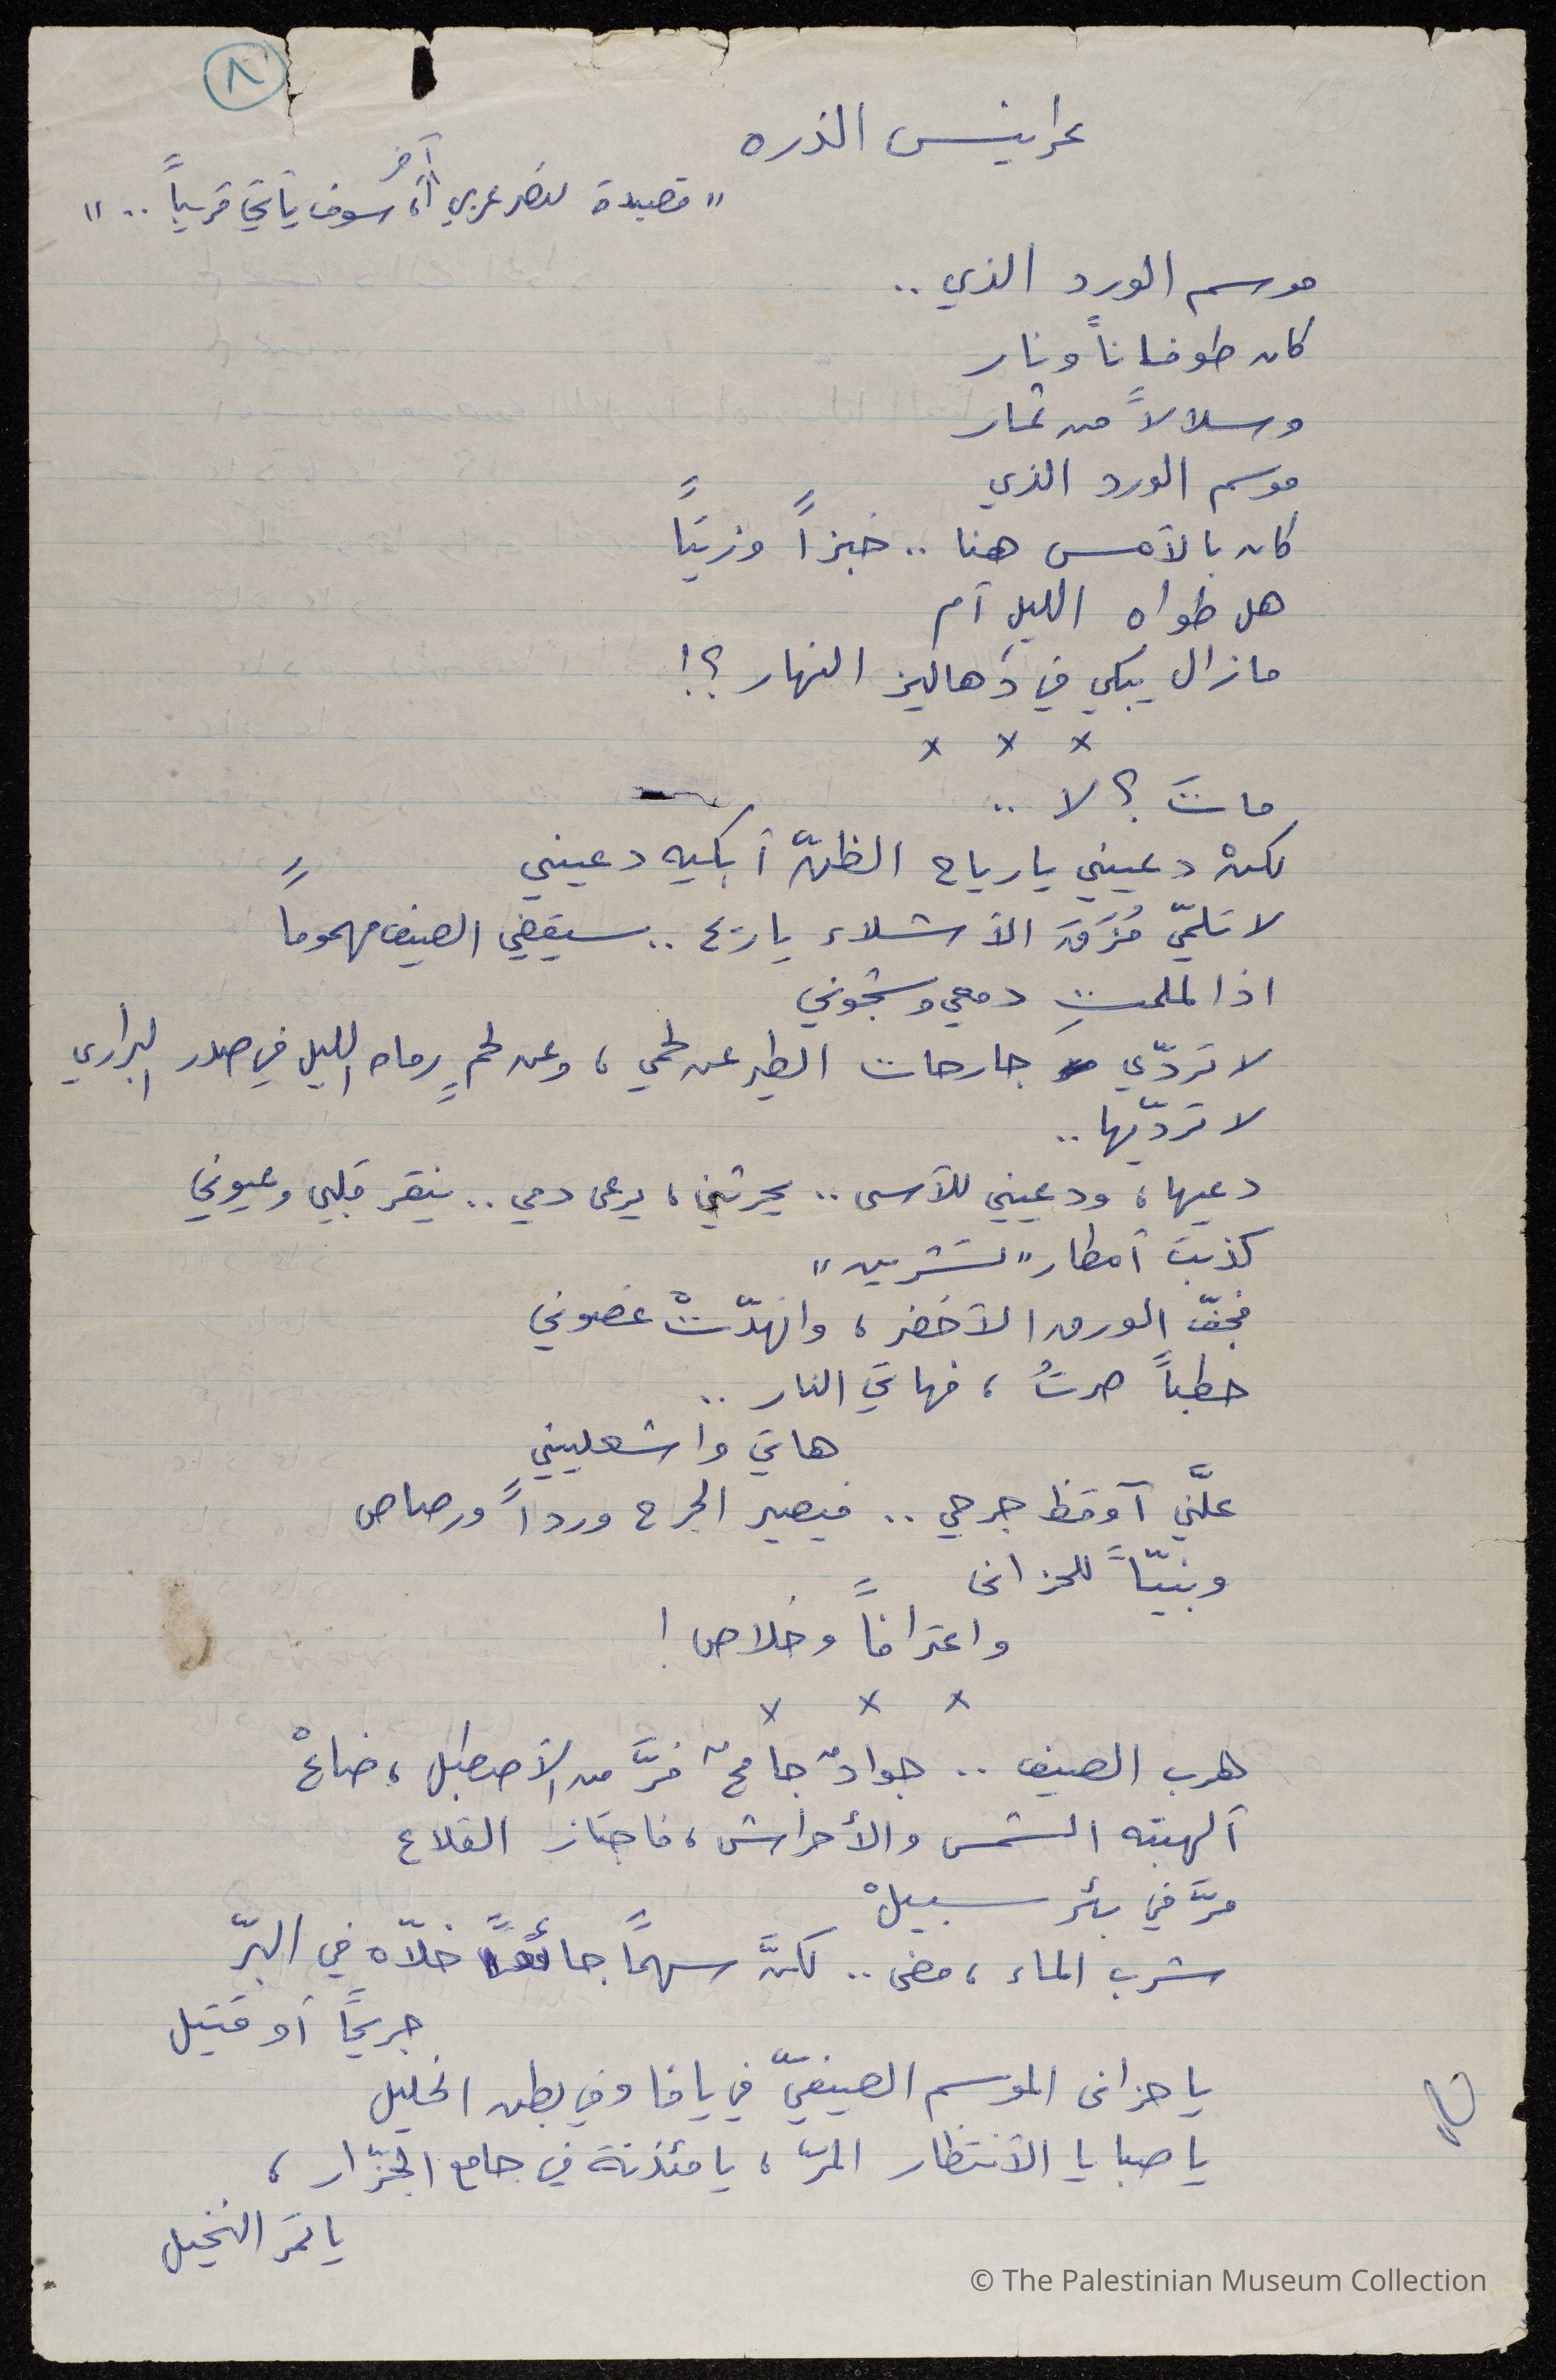 ٨
عرانيس الذره
"قصيدة لنصر عربي آخر سوف يأتي قريباً .."
موسم الورد الذي ..
كان طوفاناً ونار
وسلالاً من ثمار
موسم الورد الذي
كان بالأمس هنا .. خبزاً وزيتاً
هل طواه الليل أم
مازال يبكي في دَهاليز النهار ؟!
x x x
ماتَ ؟ لا ..
لكنْ دعيني يا رياح الظنّ أبكيه دعيني
لا تلمّي مُزَقَ الأشلاء يا ريح .. سيقضي الصيف مهموماً
اذا لملمتِ دمعي وشجوني
لا تردّي جارحات الطير عن لحمي ، وعن لحمٍ رماه الليل في صدر البراري
لا تردّيها ..
دعيها ، ودعيني للأسى .. يحرثني ، يرعى دمي .. ينقر قلبي وعيوني
كذبت أمطار "تشرين"
فجفّ الورق الأخضر ، وانهدّتْ غصوني
حطباً صرتُ ، فهاتي النار ..
هاتي واشعليني
علَّني أوقظ جرحي .. فيصير الجرح ورداً ورصاص
ونبيّاً للحزانى
واعترافاً وخلاص !
x x x
هرب الصيف .. جوادٌ جامحٌ فرَّ من الأصطبل ، ضاعْ
ألهبته الشمس والأحراش ، فاجتاز القلاع
مرَّ في بئر سبيلْ
شرب الماء ، مضى .. لكنَّ سهماً جائعاً خلّاه في البرّ
جريحاً أو قتيل
يا حزانى الموسم الصيفيّ في يافا وفي بطن الخليل
يا صبايا الأنتظار المرّ ، يا مئذنة في جامع الجزّار ،
يا تمر النخيل
© The Palestinian Museum Collection